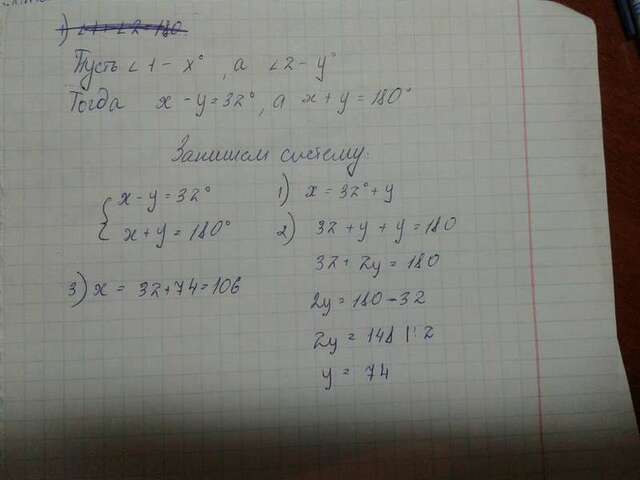 1) ∠1+∠2=180
Пусть ∠1 - x°, а ∠2 - y°
Тогда x - y = 32°, а x + y = 180°
Запишем систему:
x - y = 32°
x + y = 180°
1) x = 32° + y
2) 32 + y + y = 180
32 + 2y = 180
2y = 180 - 32
2y = 148 |:2
y = 74
3) x = 32 + 74 = 106